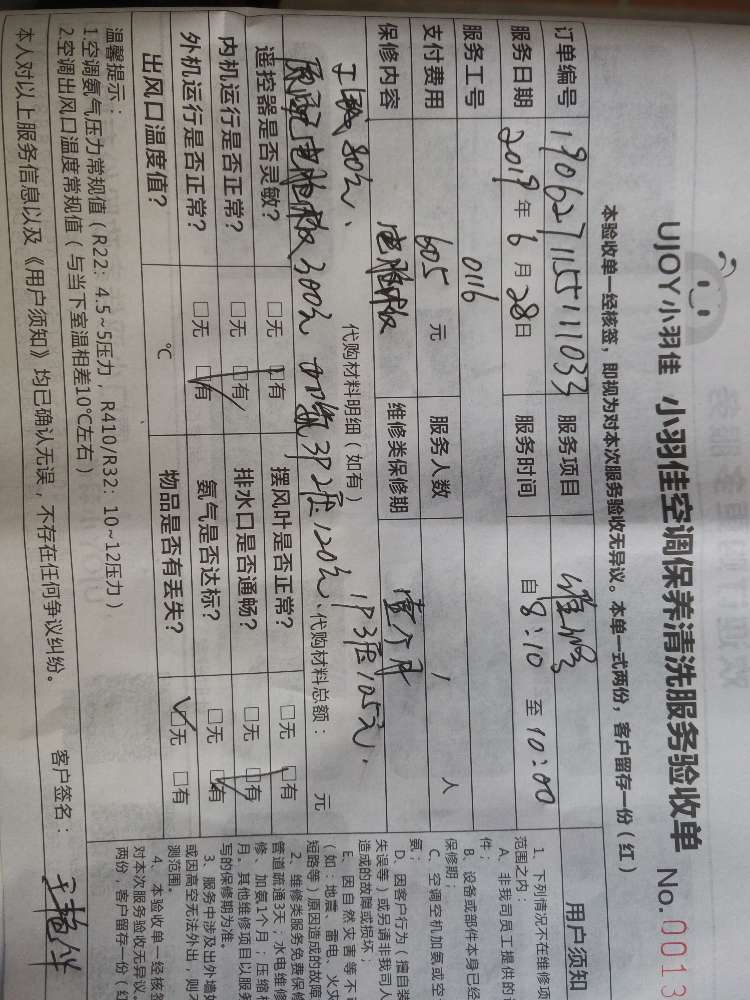 UJOY小羽佳 小羽佳空调保养清洗服务验收单 No.0013
本验收单一经核签，即视为对本次服务验收无异议。本单一式两份，客户留存一份（红）
订单编号 190627115511033 服务项目 维修
服务日期 2019年6月28日 服务时间 自8:10至10:00
服务工号 0116
支付费用 605元 服务人数 1人
保修内容 电脑板 维修类保修期 壹个月
代购材料明细（如有）
工时费80元、 1P3压105元.
原配电脑板300元 加氨3P2压120元、代购材料总额： 元
遥控器是否灵敏？ □无 □有 摆风叶是否正常？ □无 □有
内机运行是否正常？ □无 □有 排水口是否通畅？ □无 □有
外机运行是否正常？ □无 □有 氨气是否达标？ □无 □有
出风口温度值？ ℃ 物品是否有丢失？ □无 □有
温馨提示：
1.空调氨气压力常规值（R22：4.5~5压力，R410/R32：10~12压力）
2.空调出风口温度常规值（与当下室温相差10℃左右）
本人对以上服务信息以及《用户须知》均已确认无误，不存在任何争议纠纷。 客户签名：
用户须知
1、下列情况不在维修项
范围之内：
A、非我司员工提供的
件；
B、设备或部件本身已经
保修期；
C、空调空机加氨或空
氨；
D、因客户行为（擅自装
失误等）或另请非我司人
造成的故障或损坏；
E、因自然灾害等不
（如：地震、雷电、火灾
短路等）原因造成的故障
2、维修类服务免费保修
管道疏通3天；水电维修
修、加氨1个月；压缩
月。其他维修项目以服务
写的保修期为准。
3、服务中涉及出外墙
或因高空无法外出，则
测范围。
4、本验收单一经核签
对本次服务验收无异议。
两份，客户留存一份（红